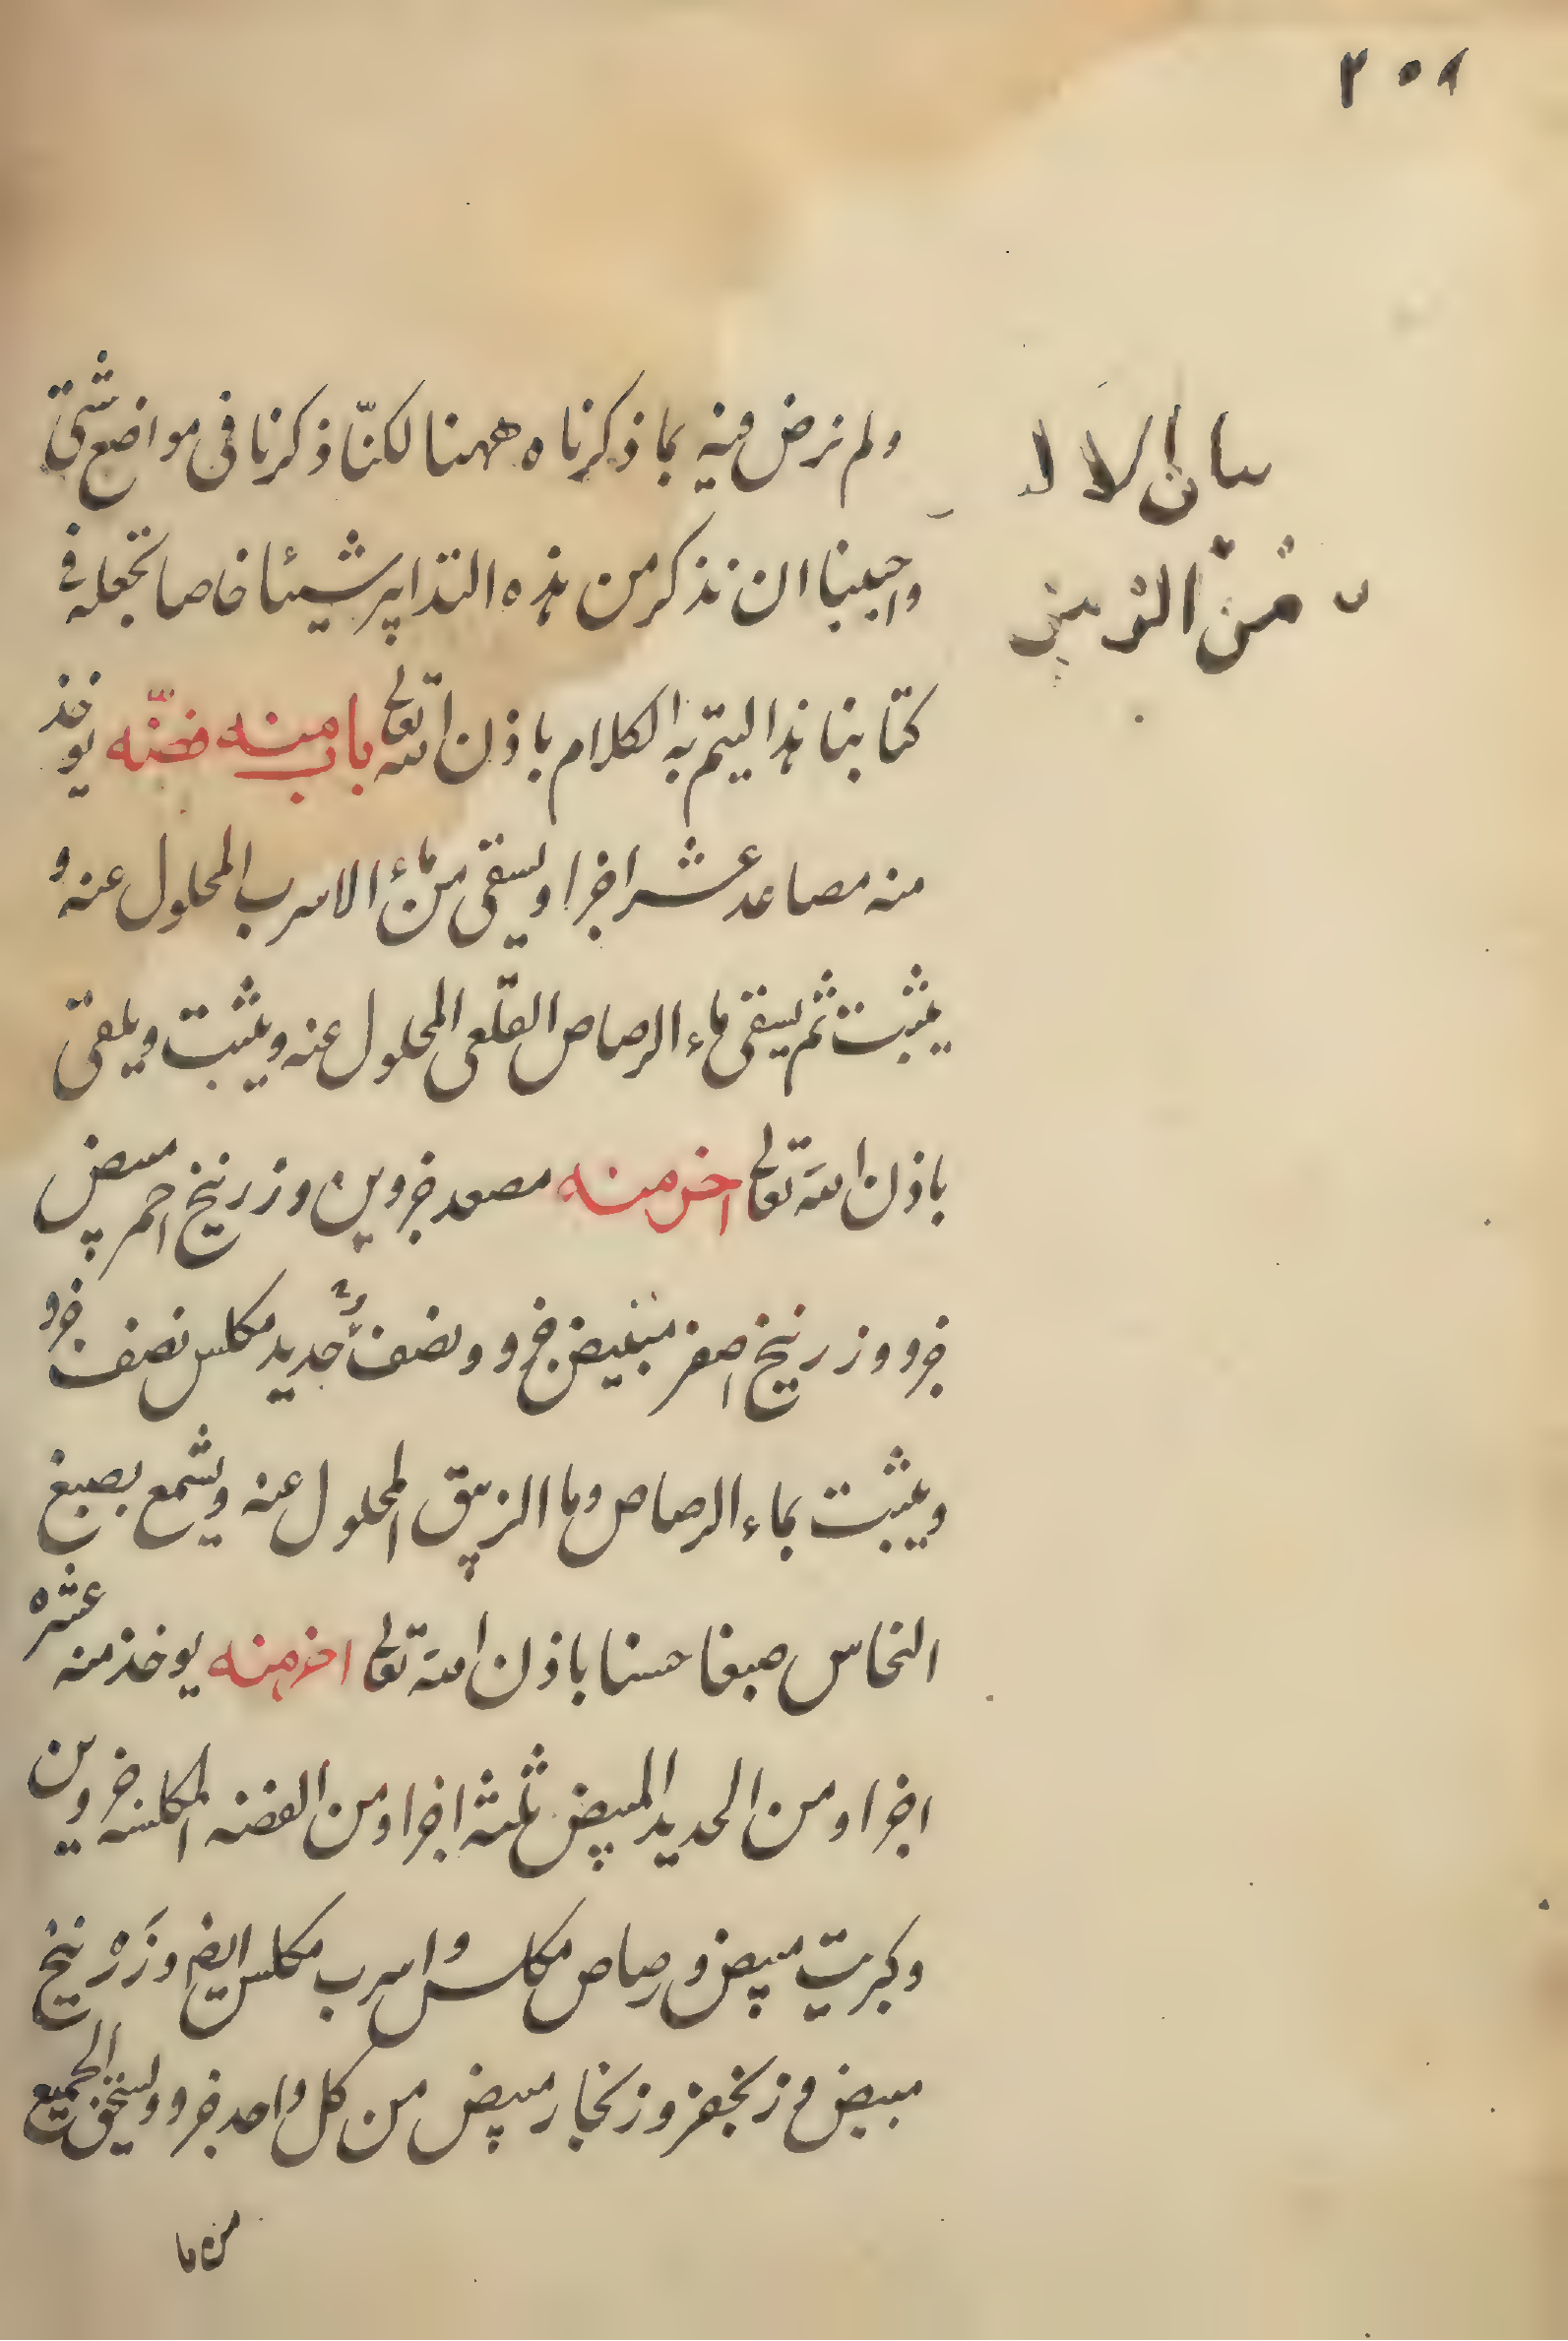 ٢٠٨
بيان الا لا
من الزيبق
ولم نرض فيه بما ذكرناه ههنا لكنّا ذكرنا فى مواضع شتى
واجبنا ان نذكر من هذه التدابير شيئا خاصا نجعله فى
كتابنا هذا ليتم به الكلام باذن الله تعالى باب منه فضّه يوخذ
منه مصاعد عشر اجزا ويسقى من ماء الاسرب المحلول عنه و
يثبت ثم يسقى ماء الرصاص القلعى المحلول عنه ويثبت ويلقى
باذن الله تعالى اخر منه مصعد جزوين وزرنيخ احمر مبيض
جزو وزرنيخ اصفر مبيض جزو ونصف وحديد مكلس نصف جزو
ويثبت بماء الرصاص وما الزيبق المحلول عنه ويشمع يصبغ
النحاس صبغا حسنا باذن الله تعالى اخر منه يوخذ منه عشره
اجزا ومن الحديد المبيض ثلثه اجزا ومن الفضه المكلسه جزوين
وكبريت مبيض ورصاص مكلس واسرب مكلس ايضا وزرنيخ
مبيض وزنجفر وزنجار مبيض من كل واحد جزو ويسحق الجميع
من ما